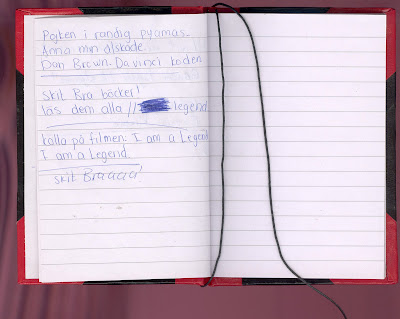 Pojken i randig pyjamas.
Anna min älskade.
Dan Brown. Da vinci koden
Skit Bra böcker!
läs dem alla // legend
kolla på filmen: I am a Legend
I am a Legend.
skit Braaaa!